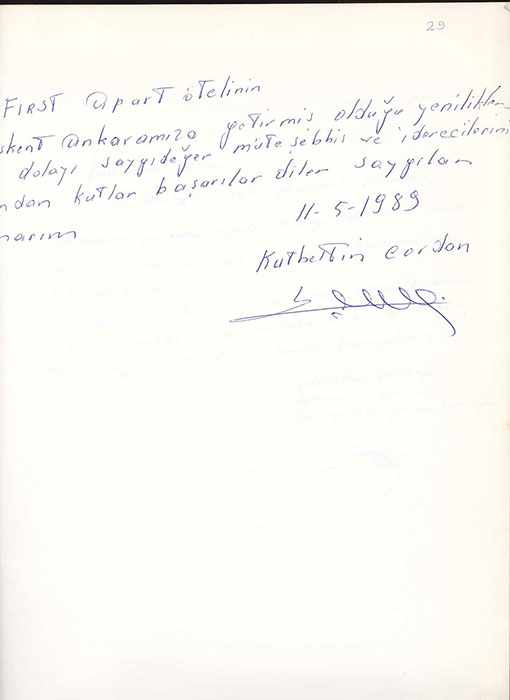 29
FIRST apart otelinin
şkent ankaramıza getirmiş olduğu yenilikler
dolayı saygıdeğer müteşebbis ve iderecilerini
ndan kutlar başarılar diler saygılar
narım
11-5-1989
Kutbettin